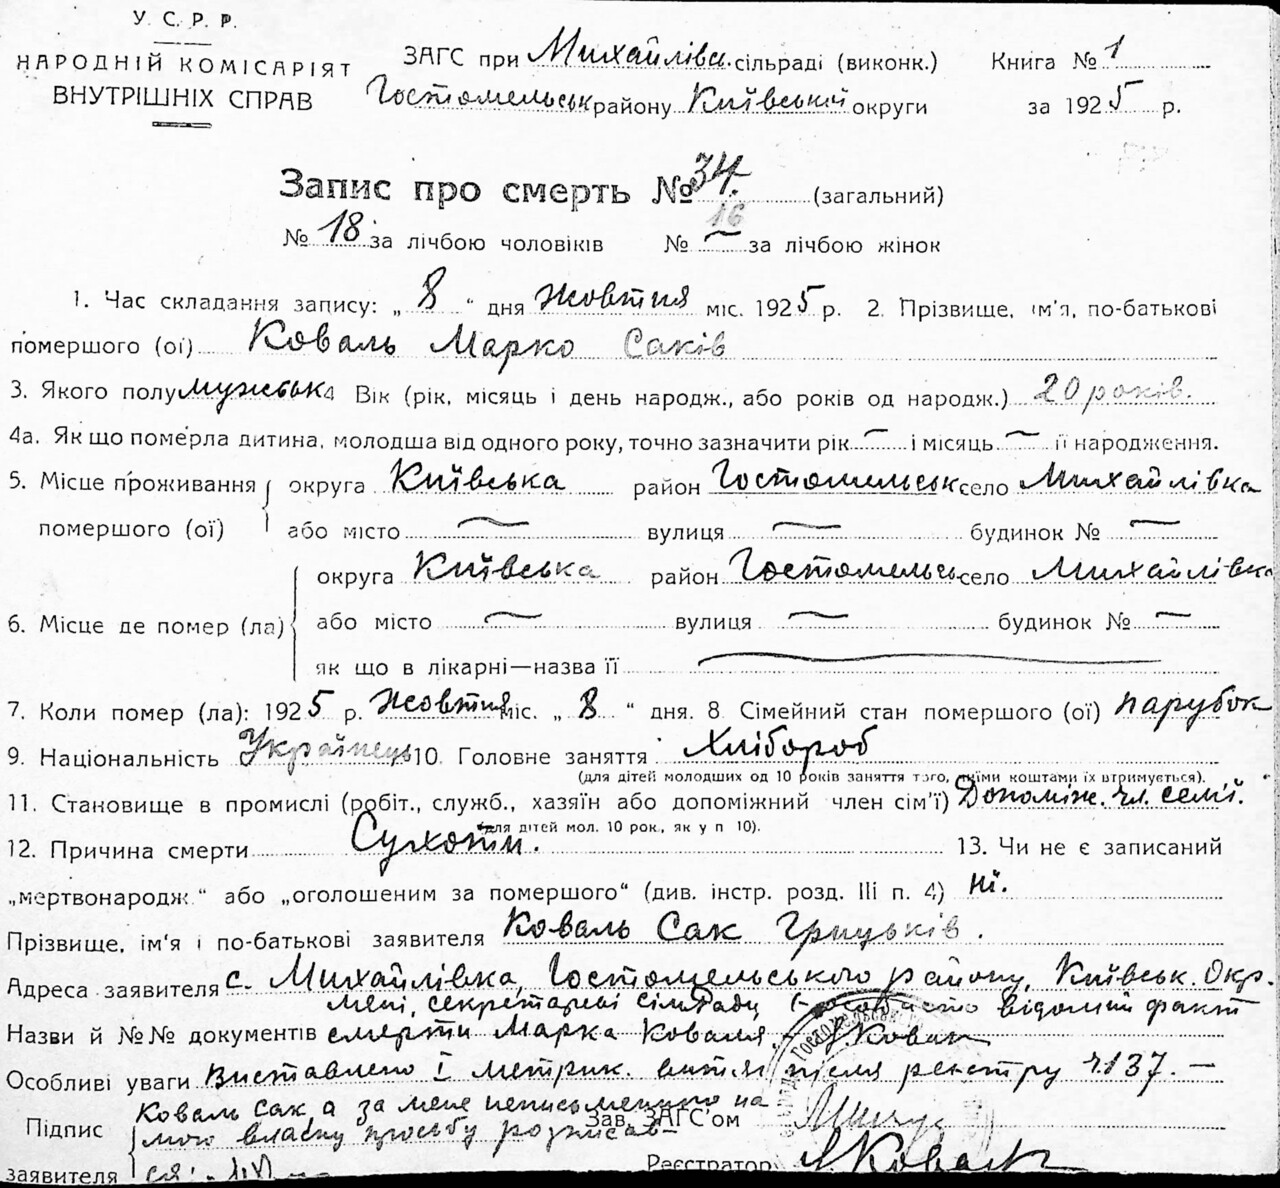 У. С. Р. Р.
НАРОДНІЙ КОМІСАРІЯТ
ВНУТРІШНІХ СПРАВ
ЗАГС при Михайлівсь. сільраді (виконк.) Книга № 1
Гостомельськ району Київській округи за 1925 р.
Запис про смерть № 34. (загальний)
16
№ 18 за лічбою чоловіків № — за лічбою жінок
1. Час складання запису: „ 8 “ дня Жовтня міс. 1925 р. 2. Прізвище, ім'я, по-батькові
помершого (ої) Коваль Марко Саків
3. Якого полу мужськ 4 Вік (рік, місяць і день народж., або років од народж.) 20 років.
4а. Як що померла дитина, молодша від одного року, точно зазначити рік — і місяць — її народження.
5. Місце проживання округа Київська район Гостомельськ село Михайлівка
помершого (ої) або місто — вулиця — будинок № —
округа Київська район Гостомельсь село Михайлівка
6. Місце де помер (ла) або місто — вулиця — будинок № —
як що в лікарні—назва її —
7. Коли помер (ла): 1925 р. Жовтня міс. „ 8 “ дня. 8. Сімейний стан помершого (ої) парубок
9. Національність Українець 10. Головне заняття Хлібороб
(для дітей молодших од 10 років заняття того, якими коштами їх втримується).
11. Становище в промислі (робіт., служб., хазяїн або допоміжний член сім'ї) Допоміж. чл. семії.
(для дітей мол. 10 рок., як у п 10).
12. Причина смерти Сухоти. 13. Чи не є записаний
„мертвонародж.“ або „оголошеним за помершого“ (див. інстр. розд. III п. 4) ні.
Прізвище, ім'я і по-батькові заявителя Коваль Сак Грицьків.
Адреса заявителя с. Михайлівка, Гостомельського району, Київськ. Окр.
мені, секретареві сільради відомий факт
Назви й №№ документів смерти Марка Коваля. Ковал
Особливі уваги Виставлено I метрик. витяг після реєстру ч. 137. —
Коваль Сак, а за мене неписьменного на
Підпис мою власну просьбу розписав- Зав. ЗАГС'ом
заявителя ся: Реєстратор